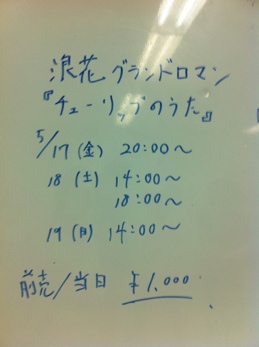 浪花グランドロマン
『チューリップのうた』
5/17(金) 20:00〜
18(土) 14:00〜
18:00〜
19(日) 14:00〜
前売/当日 ¥1,000